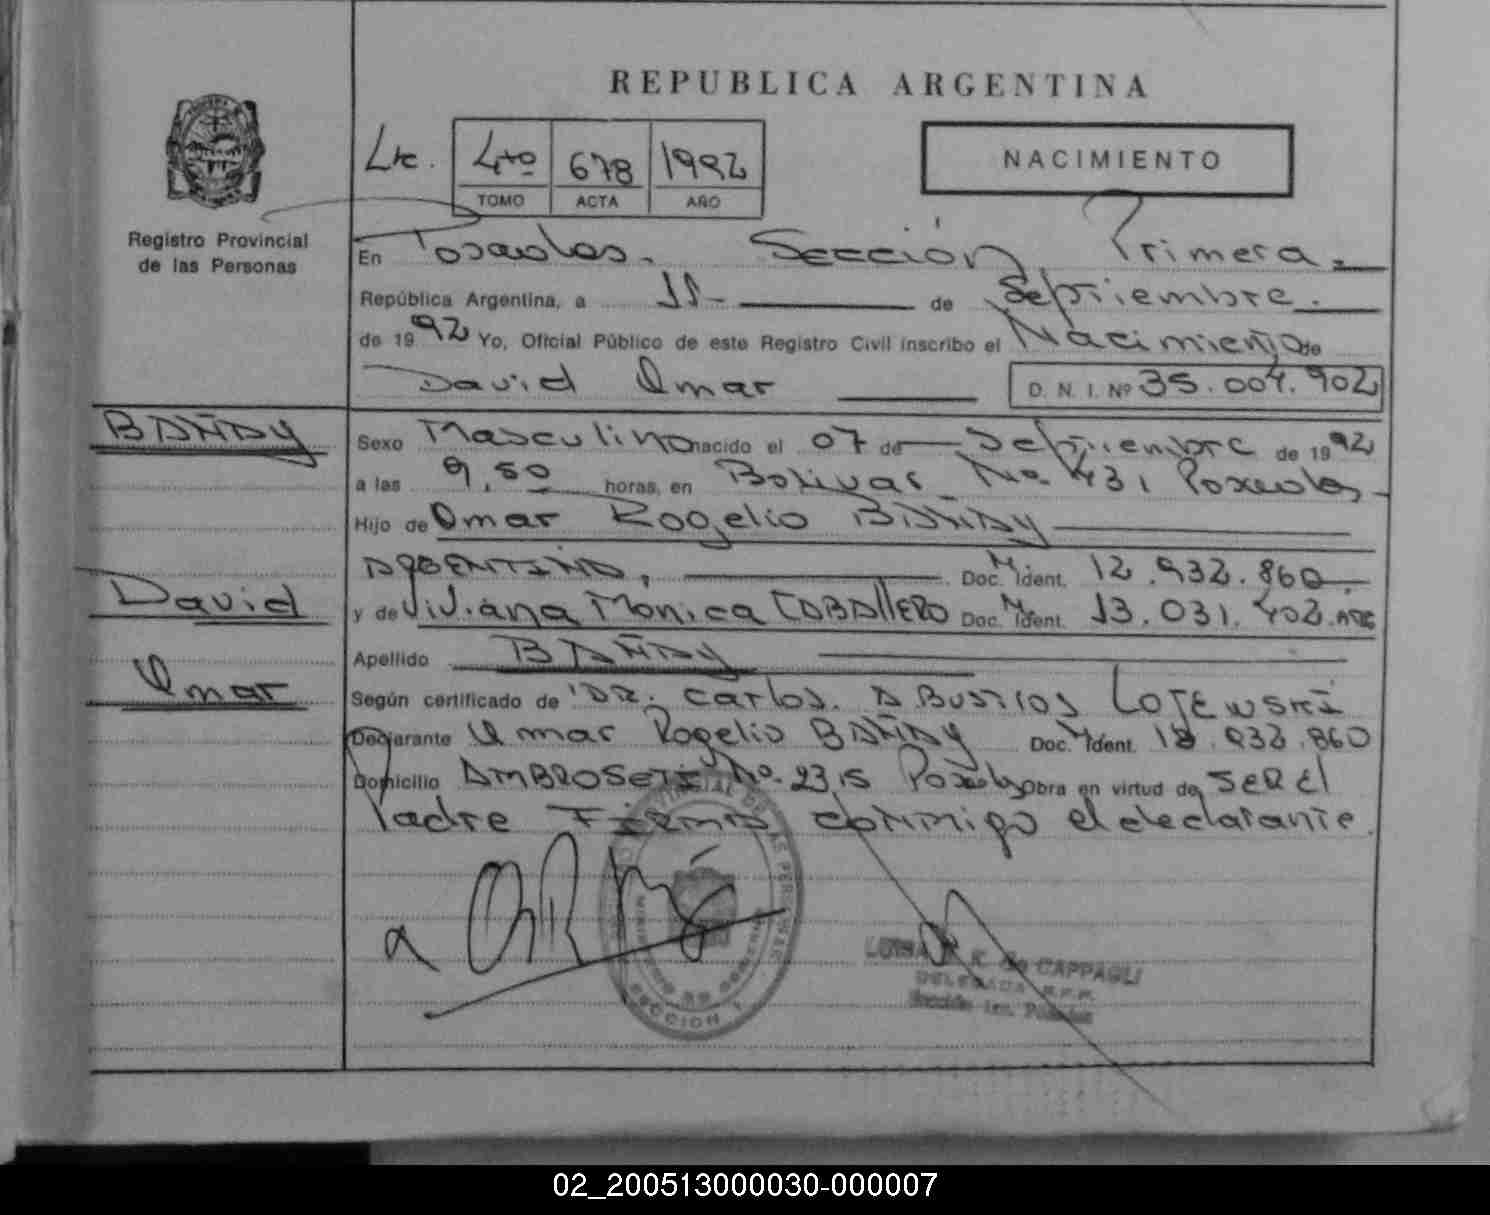 REPUBLICA ARGENTINA
Ltc. 4to 678 1992
TOMO ACTA AÑO
NACIMIENTO
Registro Provincial
de las Personas
En Posadas. Sección Primera
República Argentina, a 11 de Septiembre.
de 1992 Yo, Oficial Público de este Registro Civil inscribo el Nacimiento de
David Omar D. N. I. Nº 35.004.902
BAÑAY
Sexo Masculino nacido el 07 de Septiembre de 1992
a las 9,50 horas, en Bolivar No. 431 Posadas
Hijo de Omar Rogelio BAÑAY
ARGENTINO, Doc. M. Ident. 12.932.860
David
y de Viviana Mónica CABALLERO Doc. M. Ident. 13.031.402 ARG
Apellido BAÑAY
Omar
Según certificado de DR. Carlos. A BUSTOS
Declarante Omar Rogelio BAÑAY Doc. M. Ident. 12.932.860
Domicilio AMBROSETI No. 2315 Posadas Obra en virtud de SER El
Padre FIRMA conmigo el declarante.
SECCION 1
de CAPPAGLI
DELEGADA R.P.P.
Sección 1ra. Posadas
02_200513000030-000007